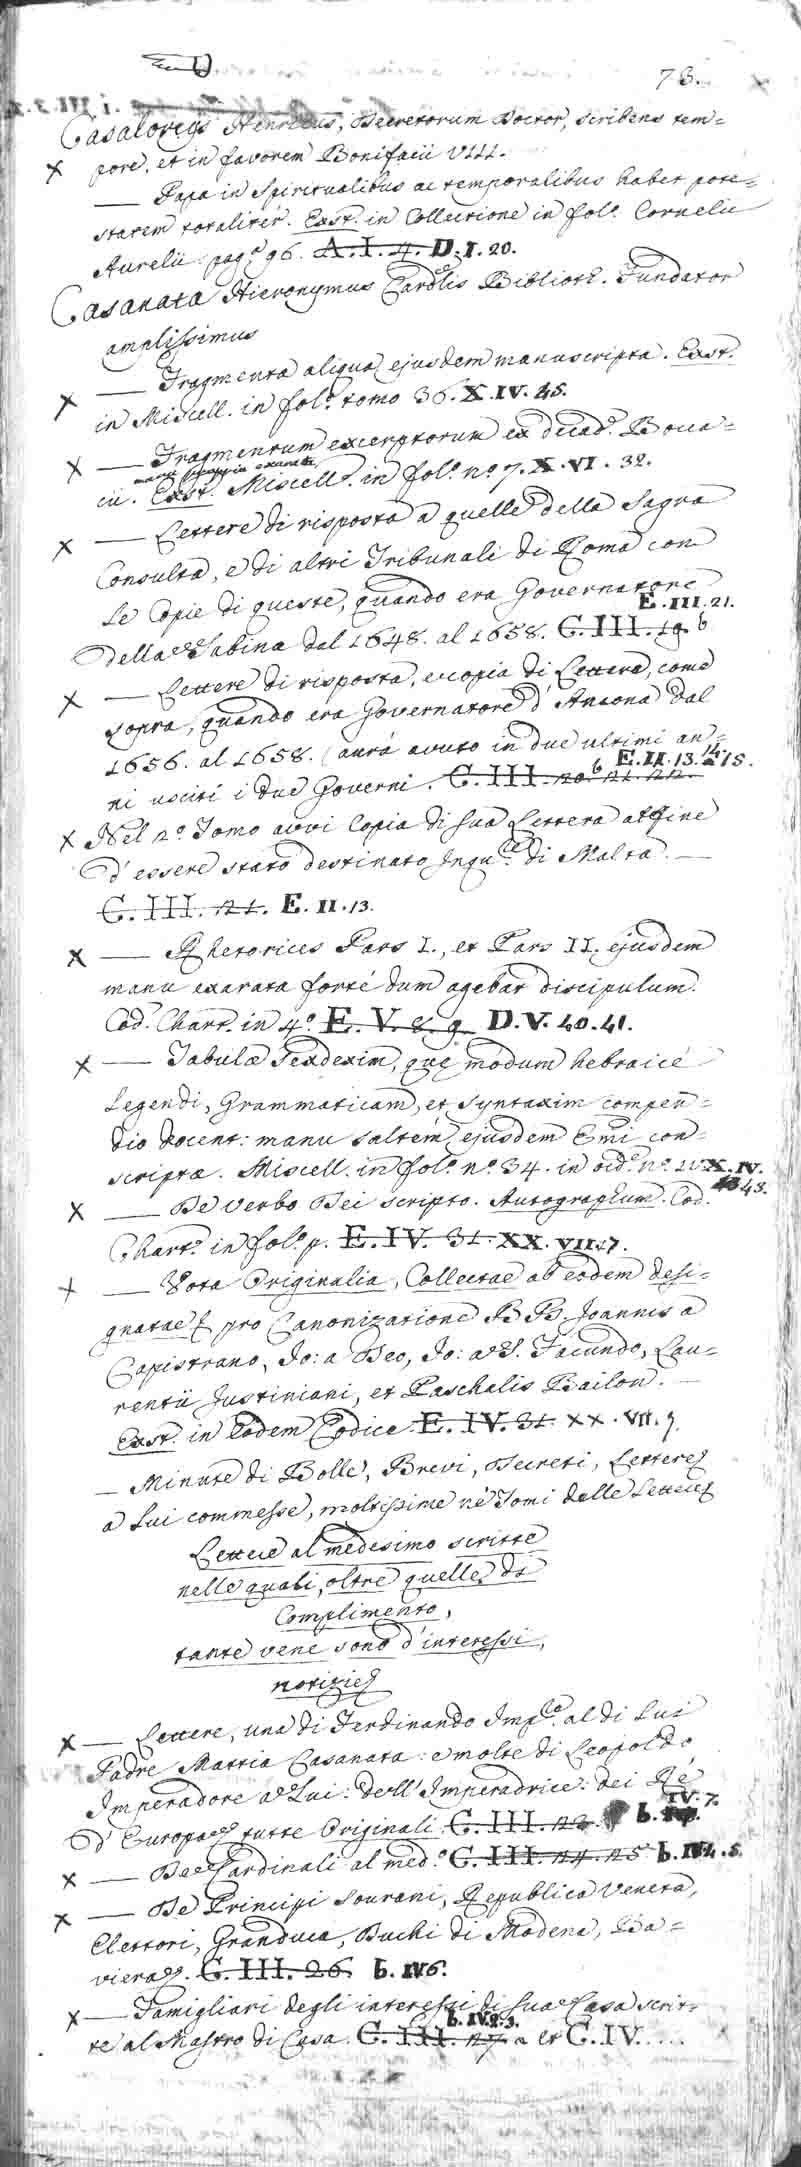 73.
Casalorcijs Henricus, Decretorum Doctor, scribens tem=
pore, et in favorem Bonifacii VIII.
— Papa in Spiritualibus ac temporalibus habet pote=
statem totalitér. Exst. in Collectione in fol.º Cornelii
Aurelii pag.ª 96. A. I. 4. D. I. 20.
Casanata Hieronymus Cardlis Biblioth. Fundator
amplissimus
— Fragmenta aliqua ejusdem manuscripta. Exst.
in Miscell. in fol.º tomo 36. X. IV. 45.
— Fragmentum excerptorum ex decad.ª Bocca=
manu propria exarata
cii. Exst. Miscell.ª in fol.º n.º 7. X. VI. 32.
— Lettere di risposta a quelle della Sagra
Consulta, e di altri Tribunali di Roma con
Le Copie di queste, quando era Governatore
E. III. 21.
della Sabina dal 1648. al 1658. C. III. 19 b
— Lettere di risposta, e copia di Lettere, come
sopra, quando era Governatore d'Ancona dal
1656. al 1658. (aurà avuto in due ultimi an=
E. II. 13. 14. a 15.
ni usciti i due Governi. C. III. 20. b 21. 22.
Nel 2.º Tomo avvi Copia di sua Lettera affine
d'essere stato destinato Inqu.re di Malta. —
C. III. 21. E. II. 13.
— Rhetorices Pars I., et Pars II. ejusdem
manu exarata forté dum agebat discipulum.
Cod. Chart. in 4.º E. V. 8. 9. D. V. 40. 41.
— Tabulæ sexdecim, que modum hebraicé
Legendi, Grammaticam, et Syntaxim compen=
dio docent: manu saltém ejusdem Emi con=
scriptæ. Miscell. in fol.º n.º 34. in oid.e n.º X. IV.
43.
— De verbo Dei scripto. Autographum. Cod.
Chart.º in fol.º p. E. IV. 31. XX. VII. 7.
— Vota Originalia, Collectae ab eodem desi=
gnatae pro Canonizatione BB. Joannis a
Capistrano, Jo: a Deo, Jo: a S. Facundo, Lau=
rentii Justiniani, et Paschalis Bailon. —
Exst. in Eodem Codice E. IV. 31. XX. VII. 7.
— Minute di Bolle, Brevi, Decreti, Lettere
a Lui commesse, moltissime né Tomi delle Lettere
Lettere al medesimo scritte
nelle quali, oltre quelle di
Complimento,
tante vene sono d'interessi,
notizie
— Lettere, una di Ferdinando Imp.re al di Lui
Padre Mattia Casanata: e molte di Leopoldo
Imperadore a Lui: dell'Imperadrice: dei Ré
IV. 7.
d'Europa tutte Originali C. III. 23. b.
— De Cardinali al med.º C. III. 24. 25 b. IV. 4. 5.
— De Principi Sourani, Republica Veneta,
Elettori, Granduca, Duchi di Modena, Ba=
viera. C. III. 26. b. IV 6.
— Famigliari degli interessi di sua Casa scrit=
b. IV. 2. 3.
te al Mastro di Casa. C. III. 27. a et C. IV.....